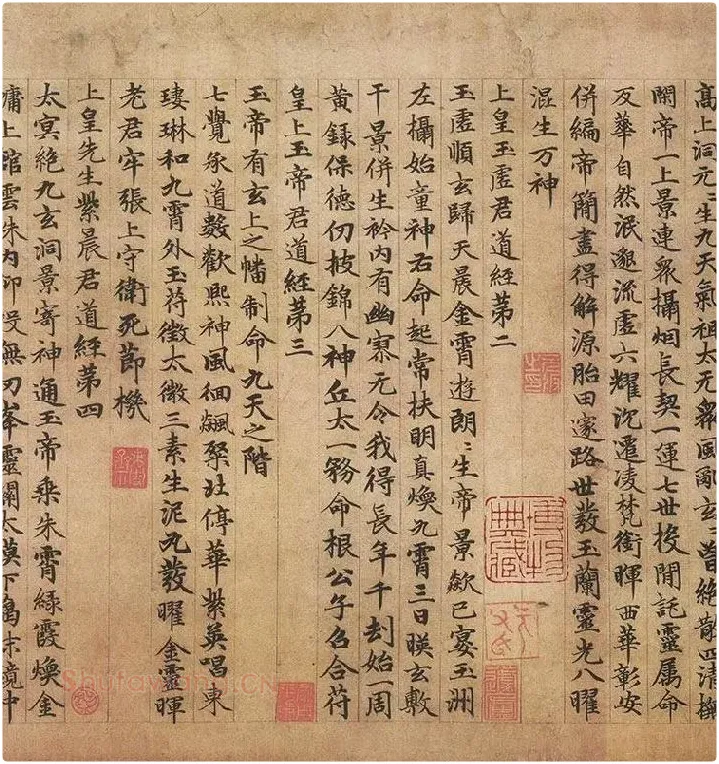 高上洞元〻生九天氣祖太无衆風
開帝一上景連衆攝烟長契一運七世投閒託靈属命
反華自然泯邈流虚六耀沉遷凌梵衝暉西華彰安
併編帝簡盡得解源胎田邃路世發玉蘭靈光八曜
混生万神
上皇玉虚君道經第二
玉虚順玄歸天晨金霄遊朗〻生帝景歘已宴玉洲
左攝始童神右命起常扶明真煥九霄三日暎玄敷
千景併生衿内有幽寥无令我得長年千刧始一周
黄籙保德仞披錦八神丘太一務命根公子名合符
皇上玉帝君道經第三
玉帝有玄上之幡制命九天之階
七覺承道数歡熙神風徊飈停華紫英唱東
瓊琳和九霄外玉苻徵太微三素生泥丸發曜金靈暉
老君牢張上守衛死節機
上皇先生紫晨君道經第四
太冥絶九玄洞景寄神通玉帝乗朱霄緑霞煥金
博物
典藏